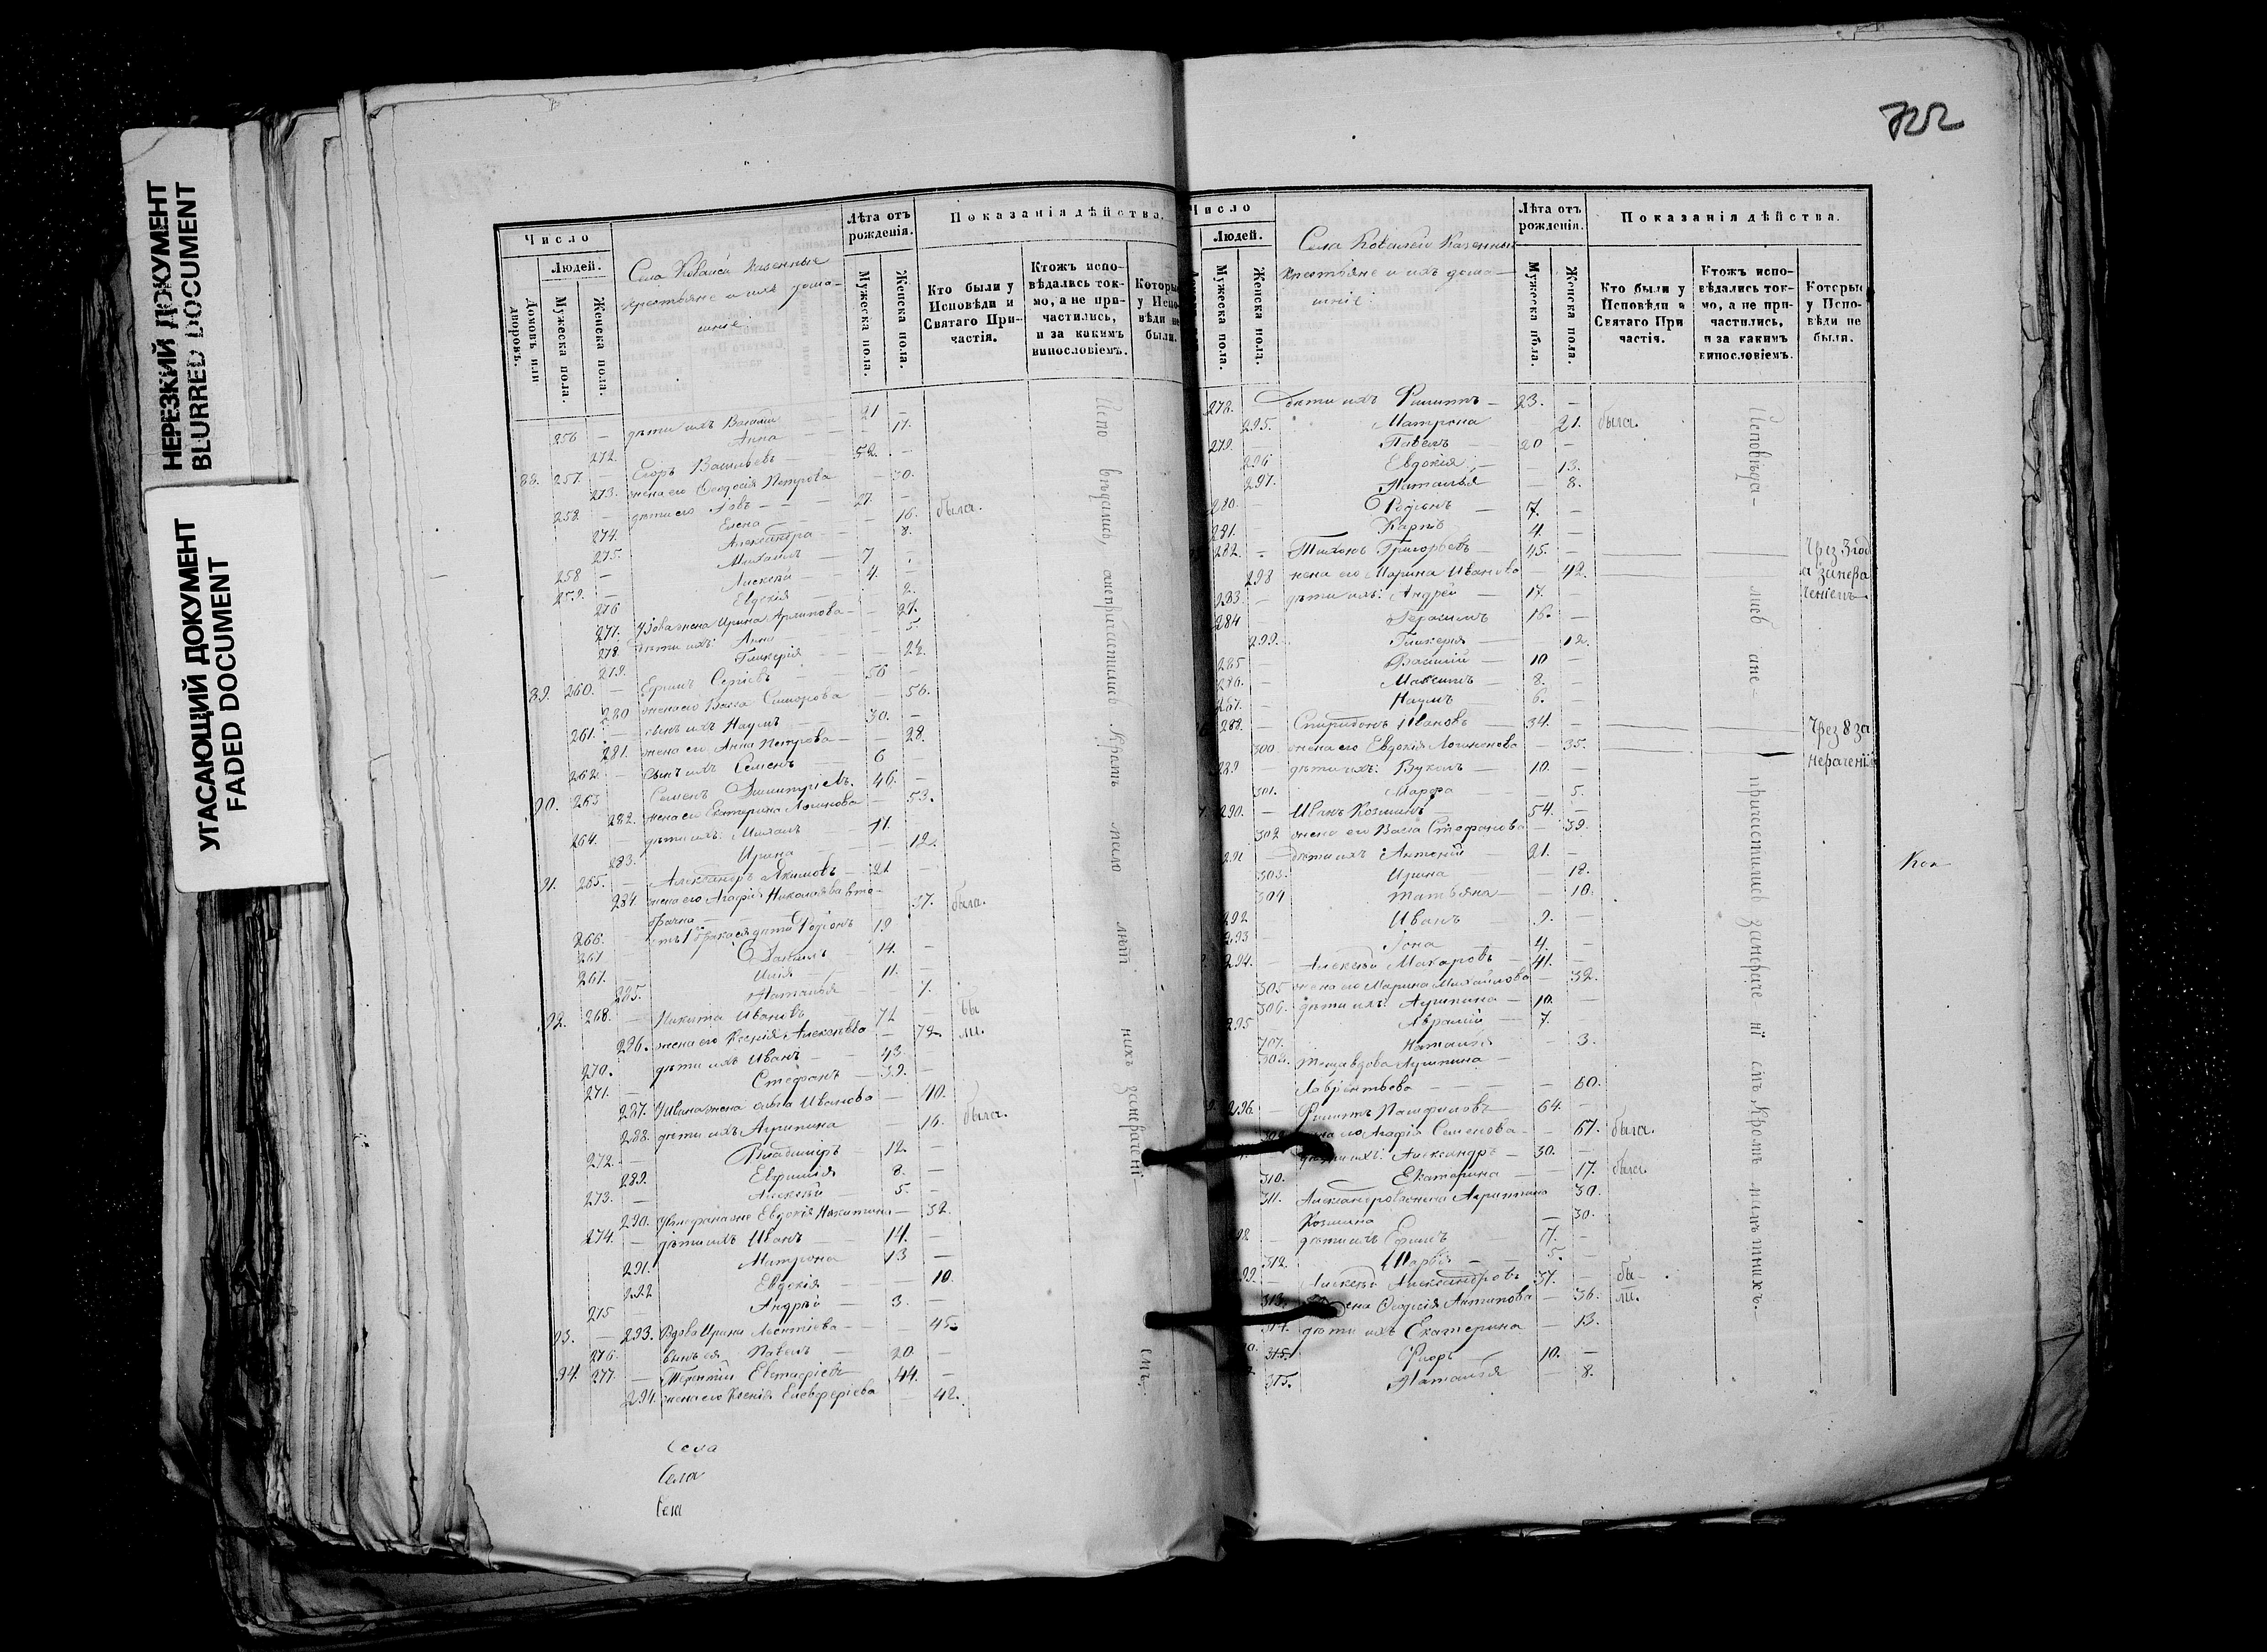 НЕРЕЗКИЙ ДОКУМЕНТ
BLURRED DOCUMENT
УГАСАЮЩИЙ ДОКУМЕНТ
FADED DOCUMENT
722
Число
Людей.
Домовъ или дворовъ.
Мужеска пола.
Женска пола.
Села Казенные
крестьяне и ихъ дома-
шніе
Лѣта отъ рожденія.
Мужеска пола.
Женска пола.
Показанія дѣйства.
Кто были у Исповѣди и Святаго При-частія.
Ктожъ испо-вѣдались ток-мо, а не при-частились, и за какимъ винословіемъ.
Которые у Испо-вѣди не были.
256 — дѣти ихъ Василій 21 —
272. Анна — 17.
88. 257. — Егоръ Васильевъ — 52. —
273. жена его Ѳеодосія Петрова — 30.
258. — дѣти его Іовъ — 27. —
274. Елена — 16. была.
275. Александра — 8.
258 — Михаилъ — 7
259. — Алексѣй — 4.
276 Евдокія — 2.
277. жена Ирина — 27.
278. дѣти ихъ: Анна — 5.
279. Гликерія — 22.
89. 260. — Сергіевъ 56 —
280 жена его Васса — 56.
261. — сынъ ихъ Наумъ 30. —
281. жена его Анна Петрова — 28.
262. — сынъ ихъ Семенъ 6 —
90. 263 Семенъ Димитріевъ. 46. —
282. жена его Екатерина Логинова — 53.
264. дѣти ихъ: Михаилъ 11.
283. Ирина — 12.
91. 265. — Александръ Якимовъ — 21 —
284 жена его Агафія Николаева вто-
брачна — 37. была.
266. — отъ 1го брака ея дѣти Родіонъ 19 —
261 — Даніилъ — 14. —
261. — Илія — 11. —
285. Наталья — 7.
92. 268. — Никита Ивановъ — 71 — бы
296. жена его Ксенія Алексѣева — 72 ли.
270. дѣти ихъ Иванъ — 43 —
271. — Стефанъ — 39. —
287. У Ивана жена Ольга Иванова — 40.
288. дѣти ихъ Агрипина 16. была.
272. — Владиміръ — 12. —
289. Евфимія 8. —
273. — Алексѣй 5. —
290. У Стефана жена Евдокія Никитина — 32.
274. — дѣти ихъ Иванъ — 14. —
291. Матрона 13 —
292 Евдокія — 10.
215 Андрей — 3. —
93. — 293. Вдова Ирина Леонтіева — 45.
276. сынъ ея Павелъ — 20. —
94. 277. — Терентій Евстафіевъ 44. —
294. жена его Ксенія Елевферіева — 42.
Испо вѣдались, а не причастились Кромѣ лѣт нихъ за нерачені емъ.
Села
Села
Села
Число
Людей.
Мужеска пола.
Женска пола.
Села Казенные
Крестьяне и ихъ дома-
шніе
Лѣта отъ рожденія.
Мужеска пола.
Женска пола.
Показанія дѣйства.
Кто были у Исповѣди и Святаго При частія.
Ктожъ испо-вѣдались ток-мо, а не при-частились, и за какимъ винословіемъ.
Которые у Испо-вѣди не были.
278. дѣти ихъ Филиппъ — 23. —
295. Матрона 21. была.
279. Павелъ — 20 —
296 Евдокія — 13.
297. Наталья — 8.
280. — Родіонъ — 7. —
281. — Карпъ 4. —
282. — Тихонъ Григорьевъ — 45. — Чрез 3 год
298 жена его Марина Иванова — 42. а за нера
283. — дѣти ихъ: Андрей — 17. — ченіемъ
284 — Герасимъ 16. —
299. Гликерія — 12.
285 — Василій — 10 —
286. — Максимъ — 8. —
267. — Наумъ — 6. —
288. — Спиридонъ Ивановъ — 34. — Чрез 8 за
300 жена его Евдокія — 35. нераченіе
289 — дѣти ихъ: Вуколъ — 10. —
301. Марфа — 5.
290. — Иванъ Козминъ 54. —
302 жена его Васса Стефанова — 39.
291 — дѣти ихъ Антоній — 21. —
303. Ирина — 12.
304 Татьяна — 10.
292 Иванъ — 9. —
293 — Іона — 4. —
294. — Алексѣй Макаровъ — 41. —
305 жена его Марина Михайлова — 32.
306. дѣти ихъ: Агрипина — 10. —
295 — Аврамій — 7. —
707. Наталья — 3.
308. теща вдова Агрипина —
Лаврентьева — 80.
296. — Филиппъ Памфиловъ — 64. —
жена его Агафія Семенова — 67. была.
дѣти ихъ: Александръ — 30. —
310. Екатерина — 17. была.
311. Александрова жена Агрипина 30.
Козмина — 30.
дѣти ихъ Ефимъ 7. —
312. Марфа — 5. —
Алексѣй Александровъ 37. — бы-
313. жена Ѳеодосія Антипова — 36. ли.
314. дѣти ихъ Екатерина — 13.
315. Флоръ — 10. —
315. Наталья — 8.
Исповѣда- лись а не причастились за нераче ні емъ Кромѣ
Кон